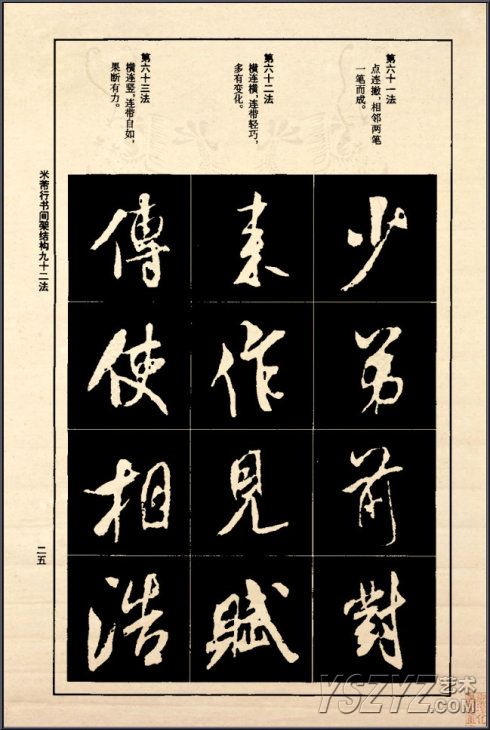 第六十一法
点连撇，相邻两笔
一笔而成。
第六十二法
横连横，连带轻巧，
多有变化。
第六十三法
横连竖，连带自如，
果断有力。
少
弟
前
對
来
作
見
賦
傳
使
相
浩
米芾行书间架结构九十二法
二五
YSZYZ艺术
.COM